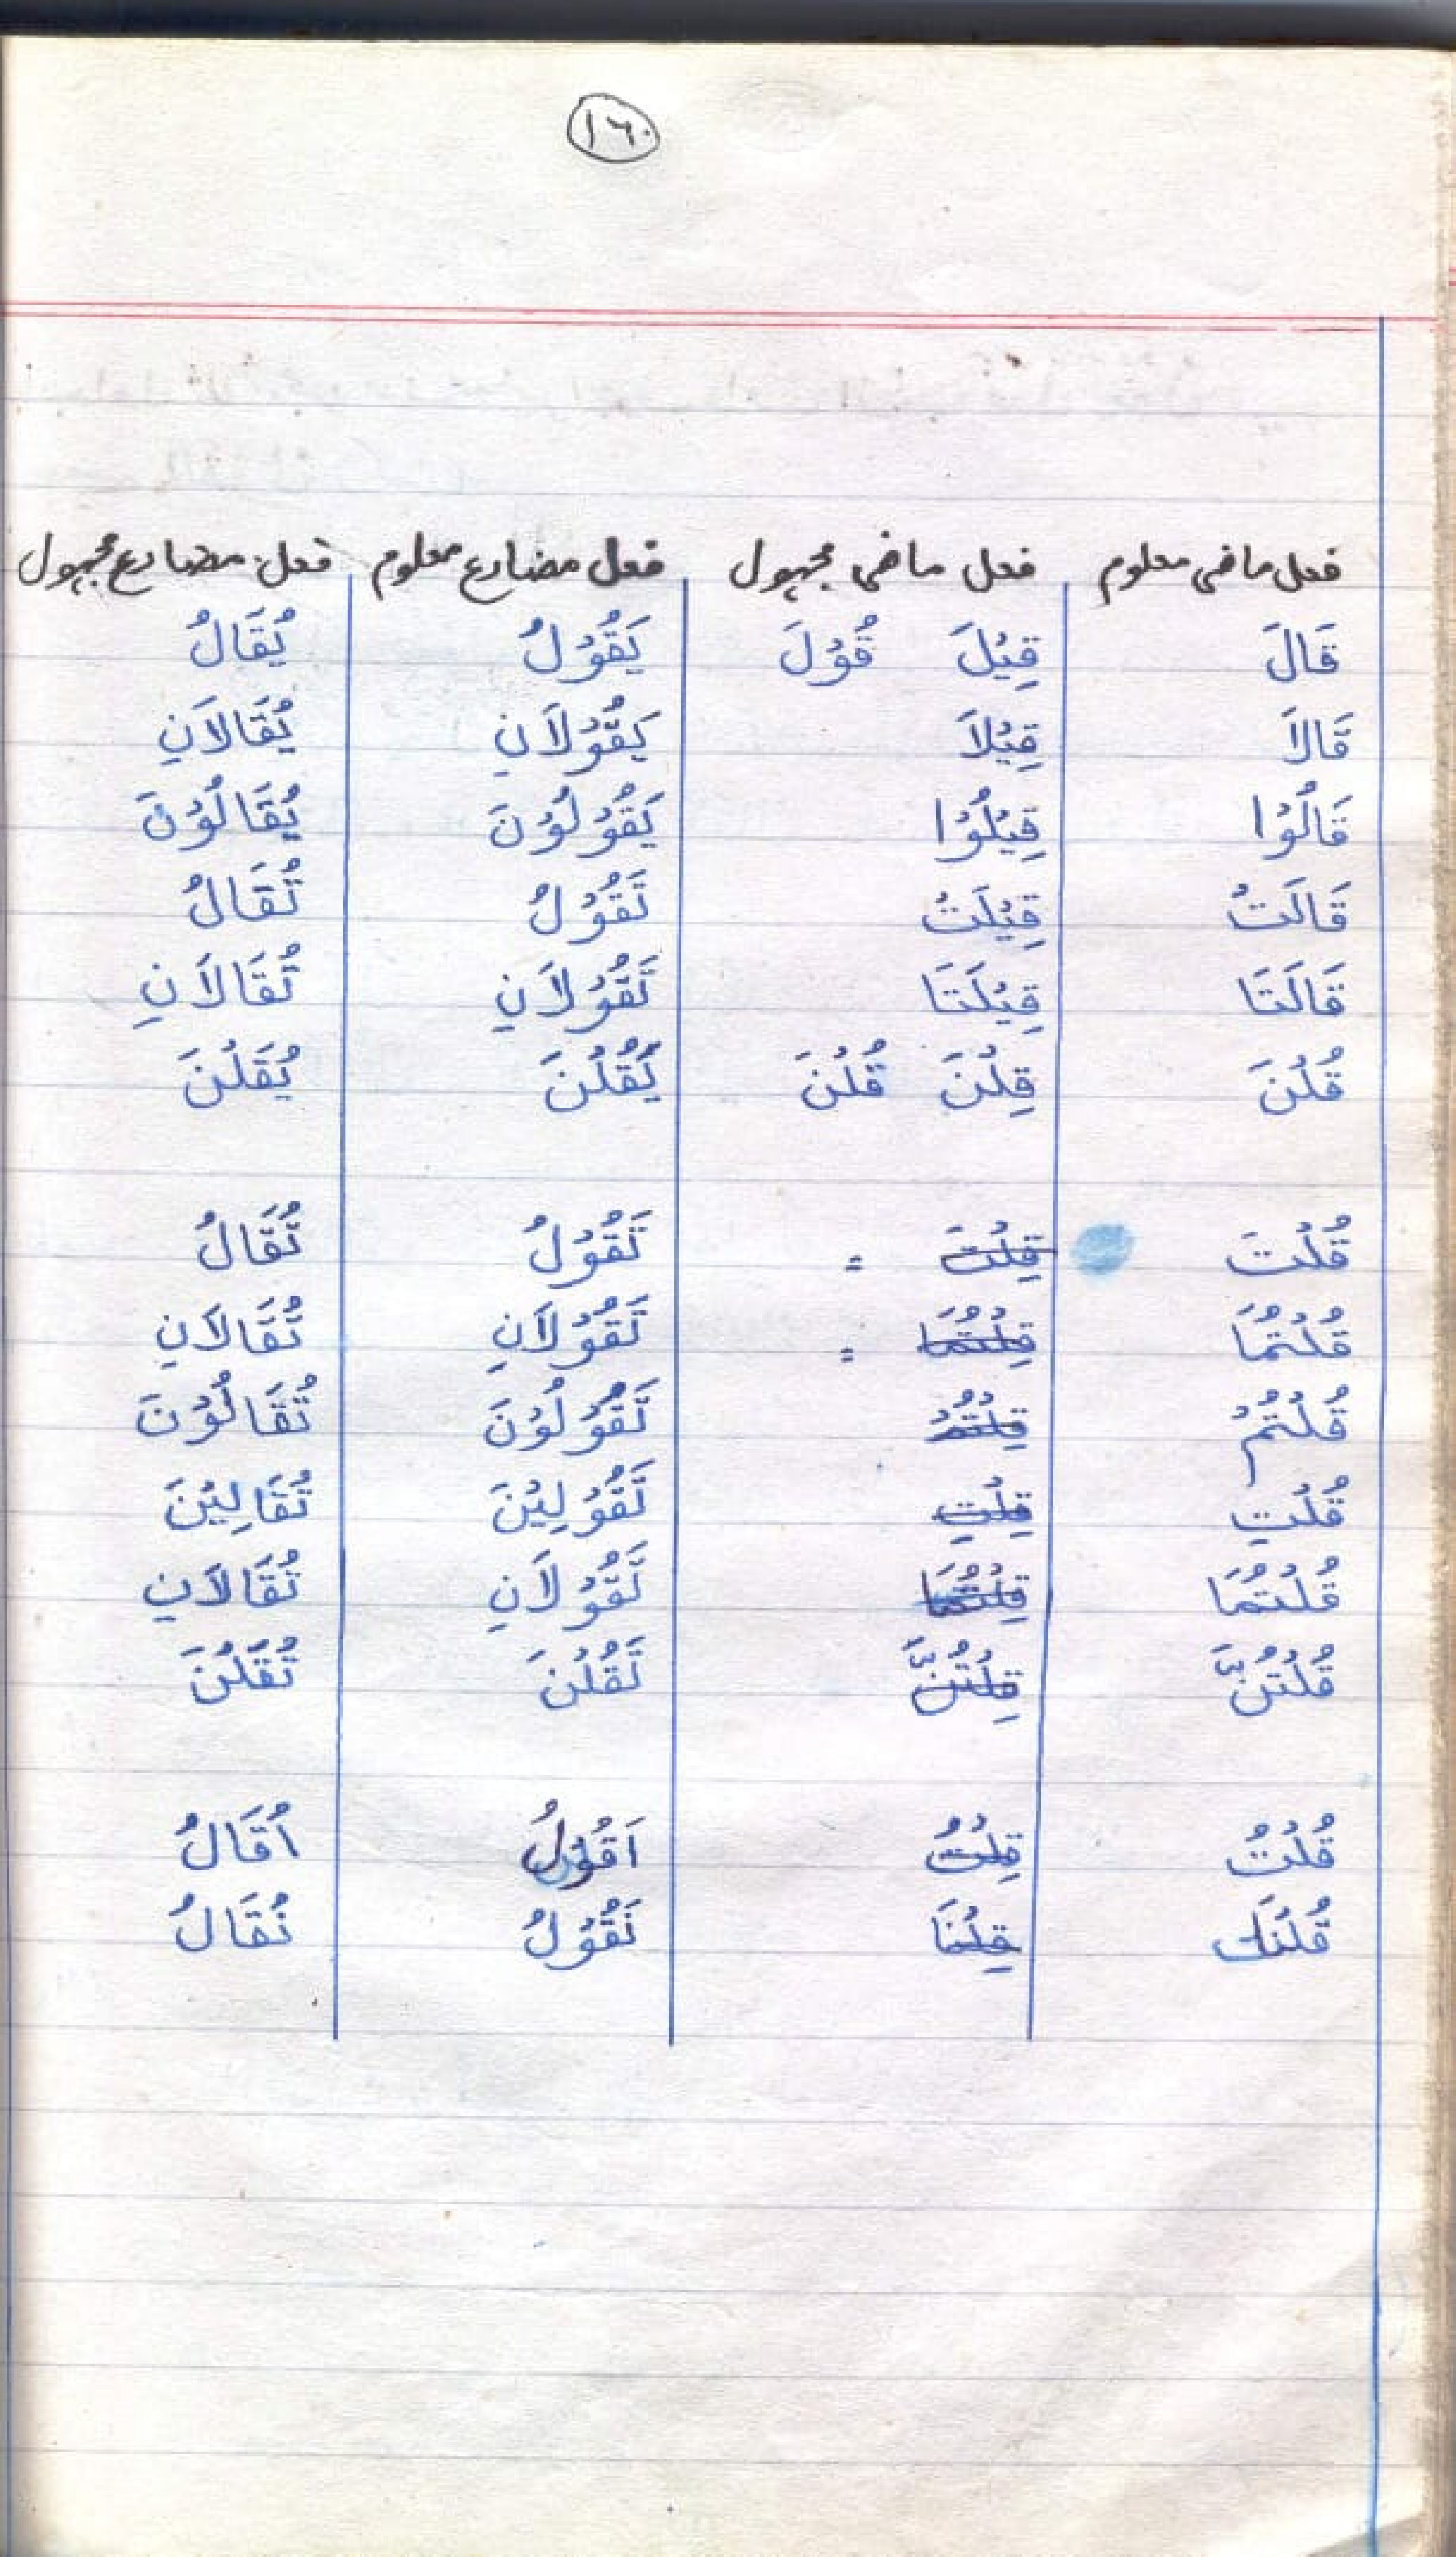 ١٦٠
فعل ماضی معلوم فعل ماضی مجہول فعل مضارع معلوم فعل مضارع مجہول
قَالَ قِیْلَ قُوْلَ یَقُوْلُ یُقَالُ
قَالَا قِیْلَا یَقُوْلَانِ یُقَالَانِ
قَالُوْا قِیْلُوْا یَقُوْلُوْنَ یُقَالُوْنَ
قَالَتْ قِیْلَتْ تَقُوْلُ تُقَالُ
قَالَتَا قِیْلَتَا تَقُوْلَانِ تُقَالَانِ
قُلْنَ قِلْنَ قُلْنَ یَقُلْنَ یُقَلْنَ
قُلْتَ قِلْتَ = تَقُوْلُ تُقَالُ
قُلْتُمَا قِلْتُمَا = تَقُوْلَانِ تُقَالَانِ
قُلْتُمْ قِلْتُمْ تَقُوْلُوْنَ تُقَالُوْنَ
قُلْتِ قِلْتِ تَقُوْلِیْنَ تُقَالِیْنَ
قُلْتُمَا قِلْتُمَا تَقُوْلَانِ تُقَالَانِ
قُلْتُنَّ قِلْتُنَّ تَقُلْنَ تُقَلْنَ
قُلْتُ قِلْتُ اَقُوْلُ اُقَالُ
قُلْنَا قِلْنَا نَقُوْلُ نُقَالُ